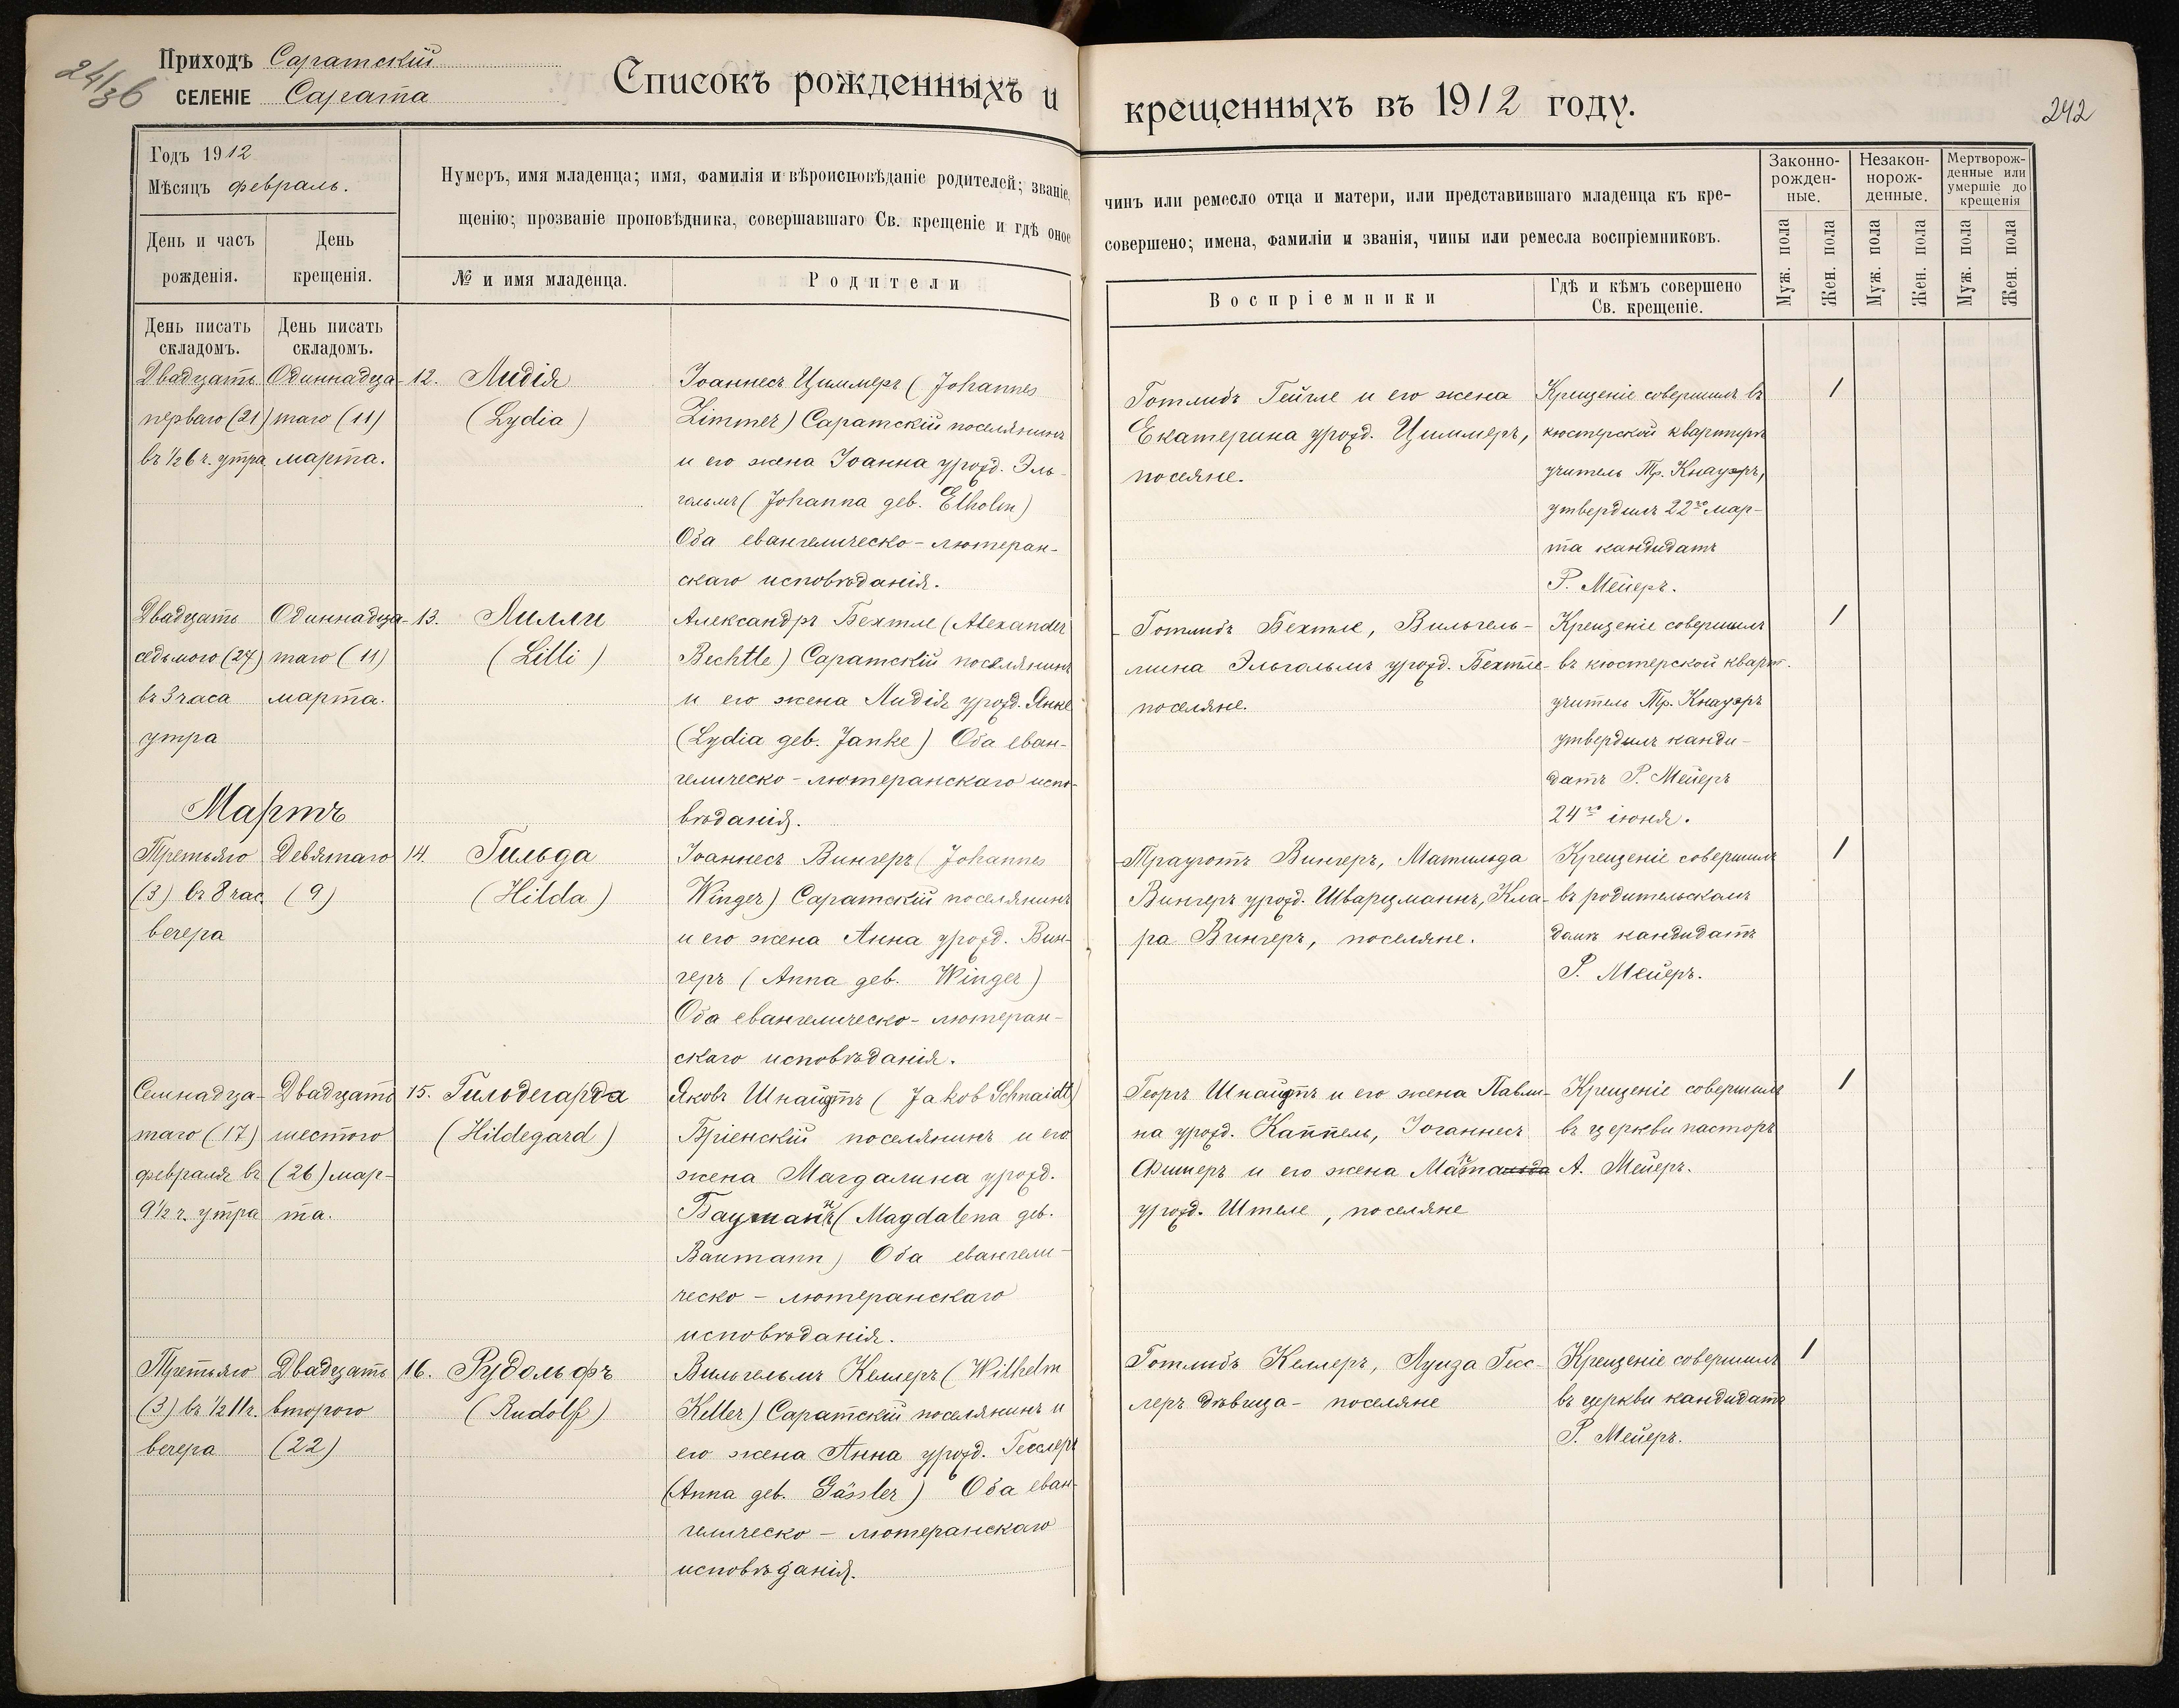 24/36
Приходъ Саратскій
СЕЛЕНІЕ Сарата
Списокъ рожденныхъ и крещенныхъ въ 1912 году.
242
Годъ 1912
Мѣсяцъ февраль.
День и часъ рожденія.
День крещенія.
Нумеръ, имя младенца; имя, фамилія и вѣроисповѣданіе родителей; званіе, чинъ или ремесло отца и матери, или представившаго младенца къ кре-
щенію; прозваніе проповѣдника, совершавшаго Св. крещеніе и гдѣ оное совершено; имена, фамиліи и званія, чины или ремесла воспріемниковъ.
№ и имя младенца.
Родители
Воспріемники
Гдѣ и кѣмъ совершено
Св. крещеніе.
Законно-
рожден-
ные.
Незакон-
норож-
денные.
Мертворож-
денные или
умершіе до
крещенія
Муж. пола
Жен. пола
Муж. пола
Жен. пола
Муж. пола
Жен. пола
День писать
складомъ.
День писать
складомъ.
Двадцать
перваго (21)
въ ½ 6 ч. утра
Одиннадца-
таго (11)
марта.
12. Лидія
(Lydia)
Іоаннесъ Циммеръ (Johannes
Zimmer) Саратскій поселянинъ
и его жена Іоанна урожд. Эль-
гольмъ (Johanna geb. Elholm)
Оба евангелическо-лютеран-
скаго исповѣданія.
Готлибъ Гейгле и его жена
Екатерина урожд. Циммеръ,
поселяне.
Крещеніе совершилъ въ
кюстерской квартирѣ
учитель Тр. Кнауэръ,
утвердилъ 22го мар-
та кандидатъ
Р. Мейеръ.
1
Двадцать
седьмого (27)
въ 3 часа
утра
Одиннадца-
таго (11)
марта.
13. Лилли
(Lilli)
Александръ Бехтле (Alexander
Bechtle) Саратскій поселянинъ
и его жена Лидія урожд. Янке
(Lydia geb. Janke) Оба еван-
гелическо-лютеранскаго испо-
вѣданія.
Готлибъ Бехтле, Вильгель-
мина Эльгольмъ урожд. Бехтле-
поселяне.
Крещеніе совершилъ
въ кюстерской кварт.
учитель Тр. Кнауэръ
утвердилъ канди-
датъ Р. Мейеръ
24го іюня.
1
Мартъ
Третьяго
(3) въ 8 час.
вечера
Девятаго
(9)
14. Гильда
(Hilda)
Іоаннесъ Вингеръ (Johannes
Winger) Саратскій поселянинъ
и его жена Анна урожд. Вин-
геръ (Anna geb. Winger)
Оба евангелическо-лютеран-
скаго исповѣданія.
Трауготъ Вингеръ, Матильда
Вингеръ урожд. Шварцманнъ, Кла-
ра Вингеръ, поселяне.
Крещеніе совершилъ
въ родительскомъ
домѣ кандидатъ
Р. Мейеръ.
1
Семнадца-
таго (17)
февраля въ
9½ ч. утра
Двадцать
шестого
(26) мар-
та.
15. Гильдегарда
(Hildegard)
Яковъ Шнайдтъ (Jakob Schnaidt)
Бріенскій поселянинъ и его
жена Магдалина урожд.
Бауманнъ (Magdalena geb.
Baumann) Оба евангели-
ческо-лютеранскаго
исповѣданія.
Георгъ Шнайдтъ и его жена Павли-
на урожд. Каппель, Іоганнесъ
Фишеръ и его жена
урожд. Штеле, поселяне
Крещеніе совершилъ
въ церкви пасторъ
А. Мейеръ.
1
Третьяго
(3) въ ½ 11 ч.
вечера
Двадцать
второго
(22)
16. Рудольфъ
(Rudolf)
Вильгельмъ Келлеръ (Wilhelm
Keller) Саратскій поселянинъ и
его жена Анна урожд. Гесслеръ
(Anna geb. Gässler) Оба еван-
гелическо-лютеранскаго
исповѣданія.
Готлибъ Келлеръ, Луиза Гесс-
леръ дѣвица- поселяне
Крещеніе совершилъ
въ церкви кандидатъ
Р. Мейеръ.
1